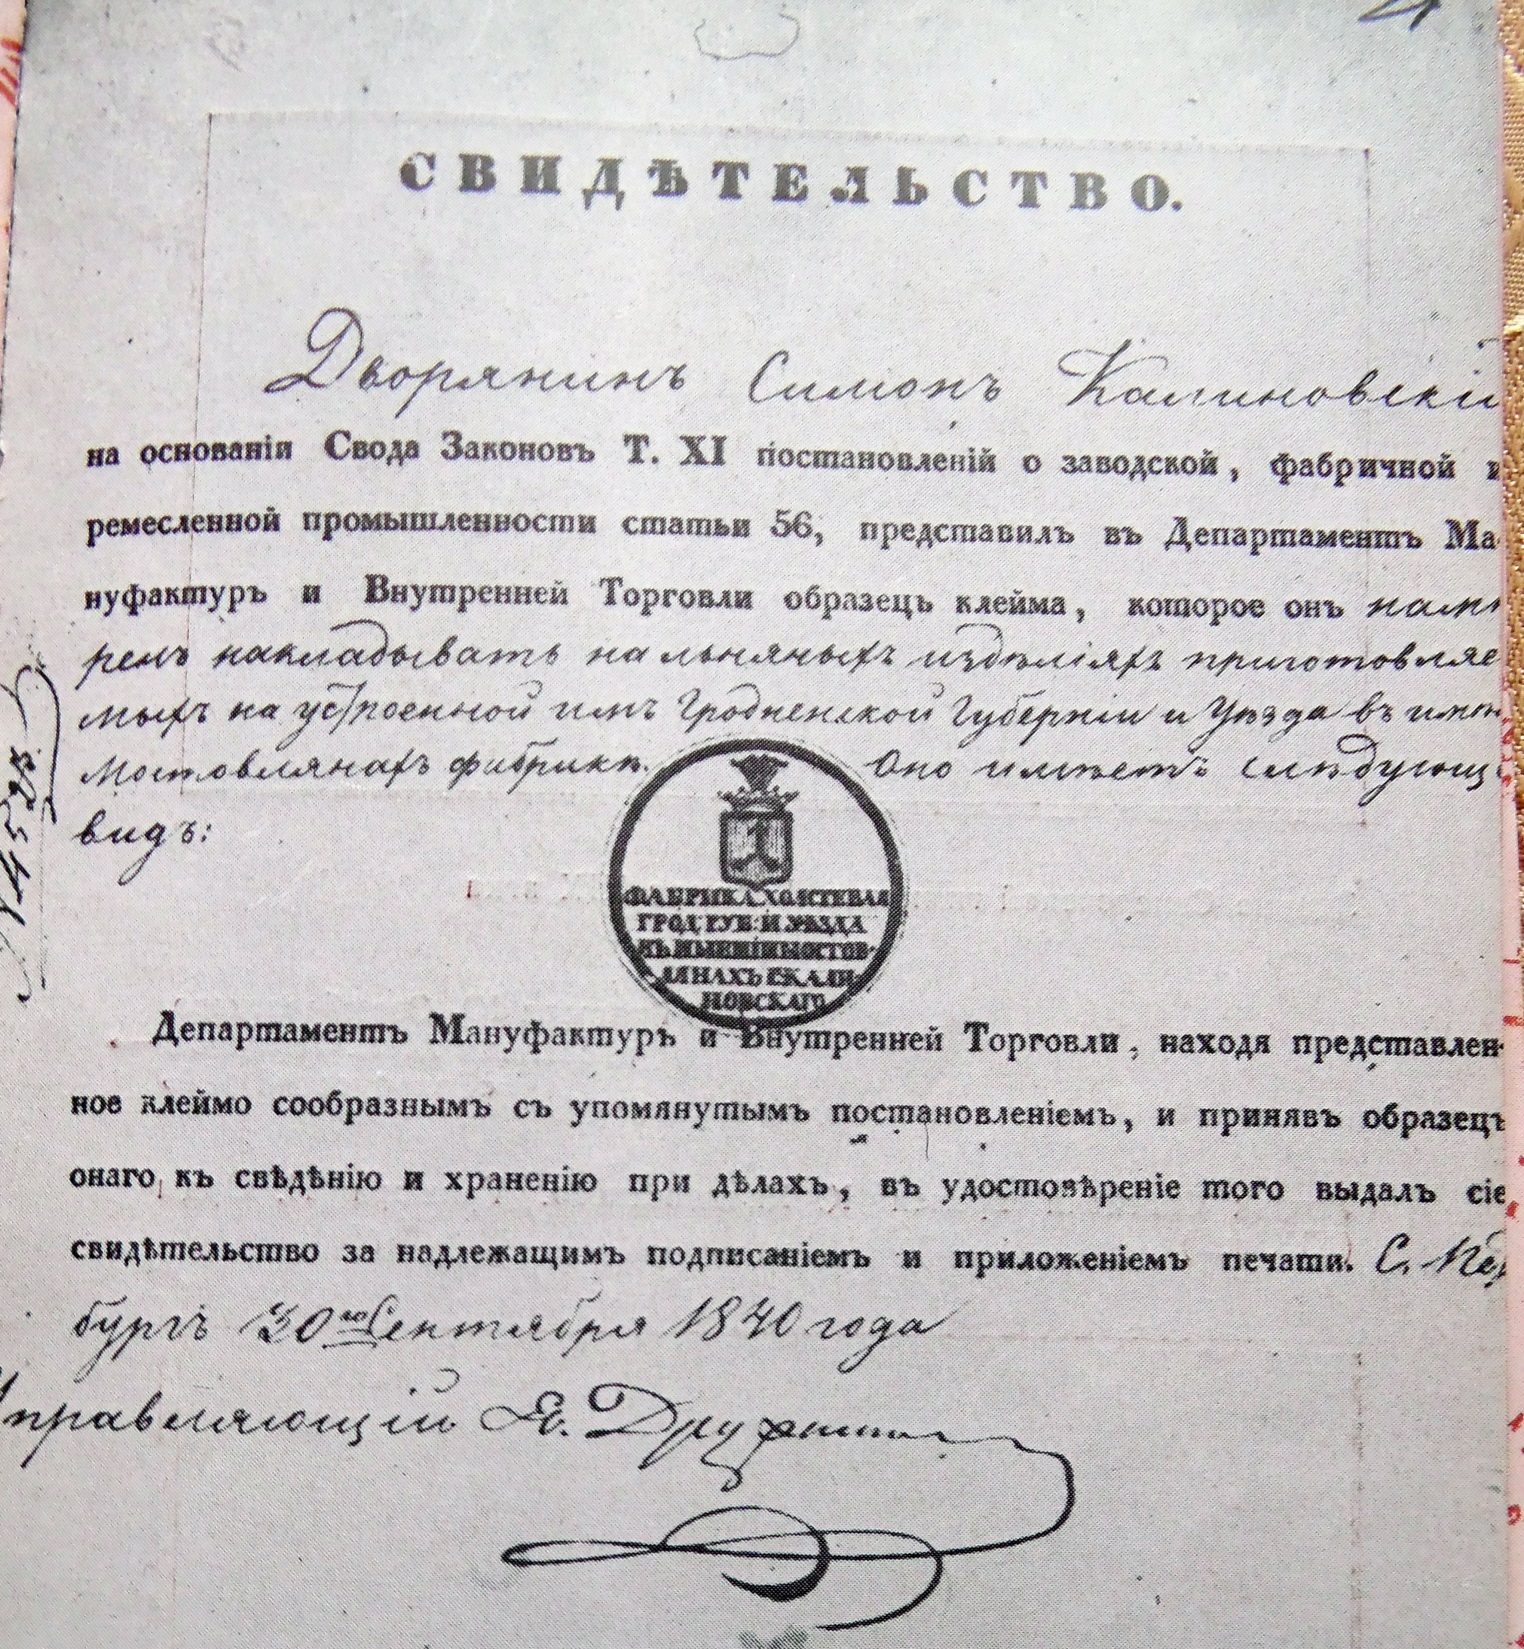 СВИДѢТЕЛЬСТВО.
Дворянинъ Симонъ Калиновскій
на основаніи Свода Законовъ Т. XI постановленій о заводской, фабричной и
ремесленной промышленности статьи 56, представилъ въ Департаментъ Ма-
нуфактуръ и Внутренней Торговли образецъ клейма, которое онъ намѣ
ренъ накладывать на льняныхъ издѣліяхъ приготовляе
мыхъ на устроенной имъ Гродненской Губерніи и Уѣзда въ имѣн
Мостовлянахъ фабрикѣ. Оно имѣетъ слѣдующ
видъ:
ФАБРИКА ХОЛСТЕВАЯ
ГРОД: ГУБ: И УѢЗДА
ВЪ ИМЕНІИ МОСТОВ-
ЛЯНАХЪ С КАЛИ-
НОВСКАГО
Департаментъ Мануфактуръ и Внутренней Торговли, находя представлен-
ное клеймо сообразнымъ съ упомянутымъ постановленіемъ, и принявъ образецъ
онаго къ свѣдѣнію и храненію при дѣлахъ, въ удостовѣреніе того выдалъ сіе
свидѣтельство за надлежащимъ подписаніемъ и приложеніемъ печати. С. Пет
бургъ 30го Сентября 1840 года
Управляющій Я. Дружинин